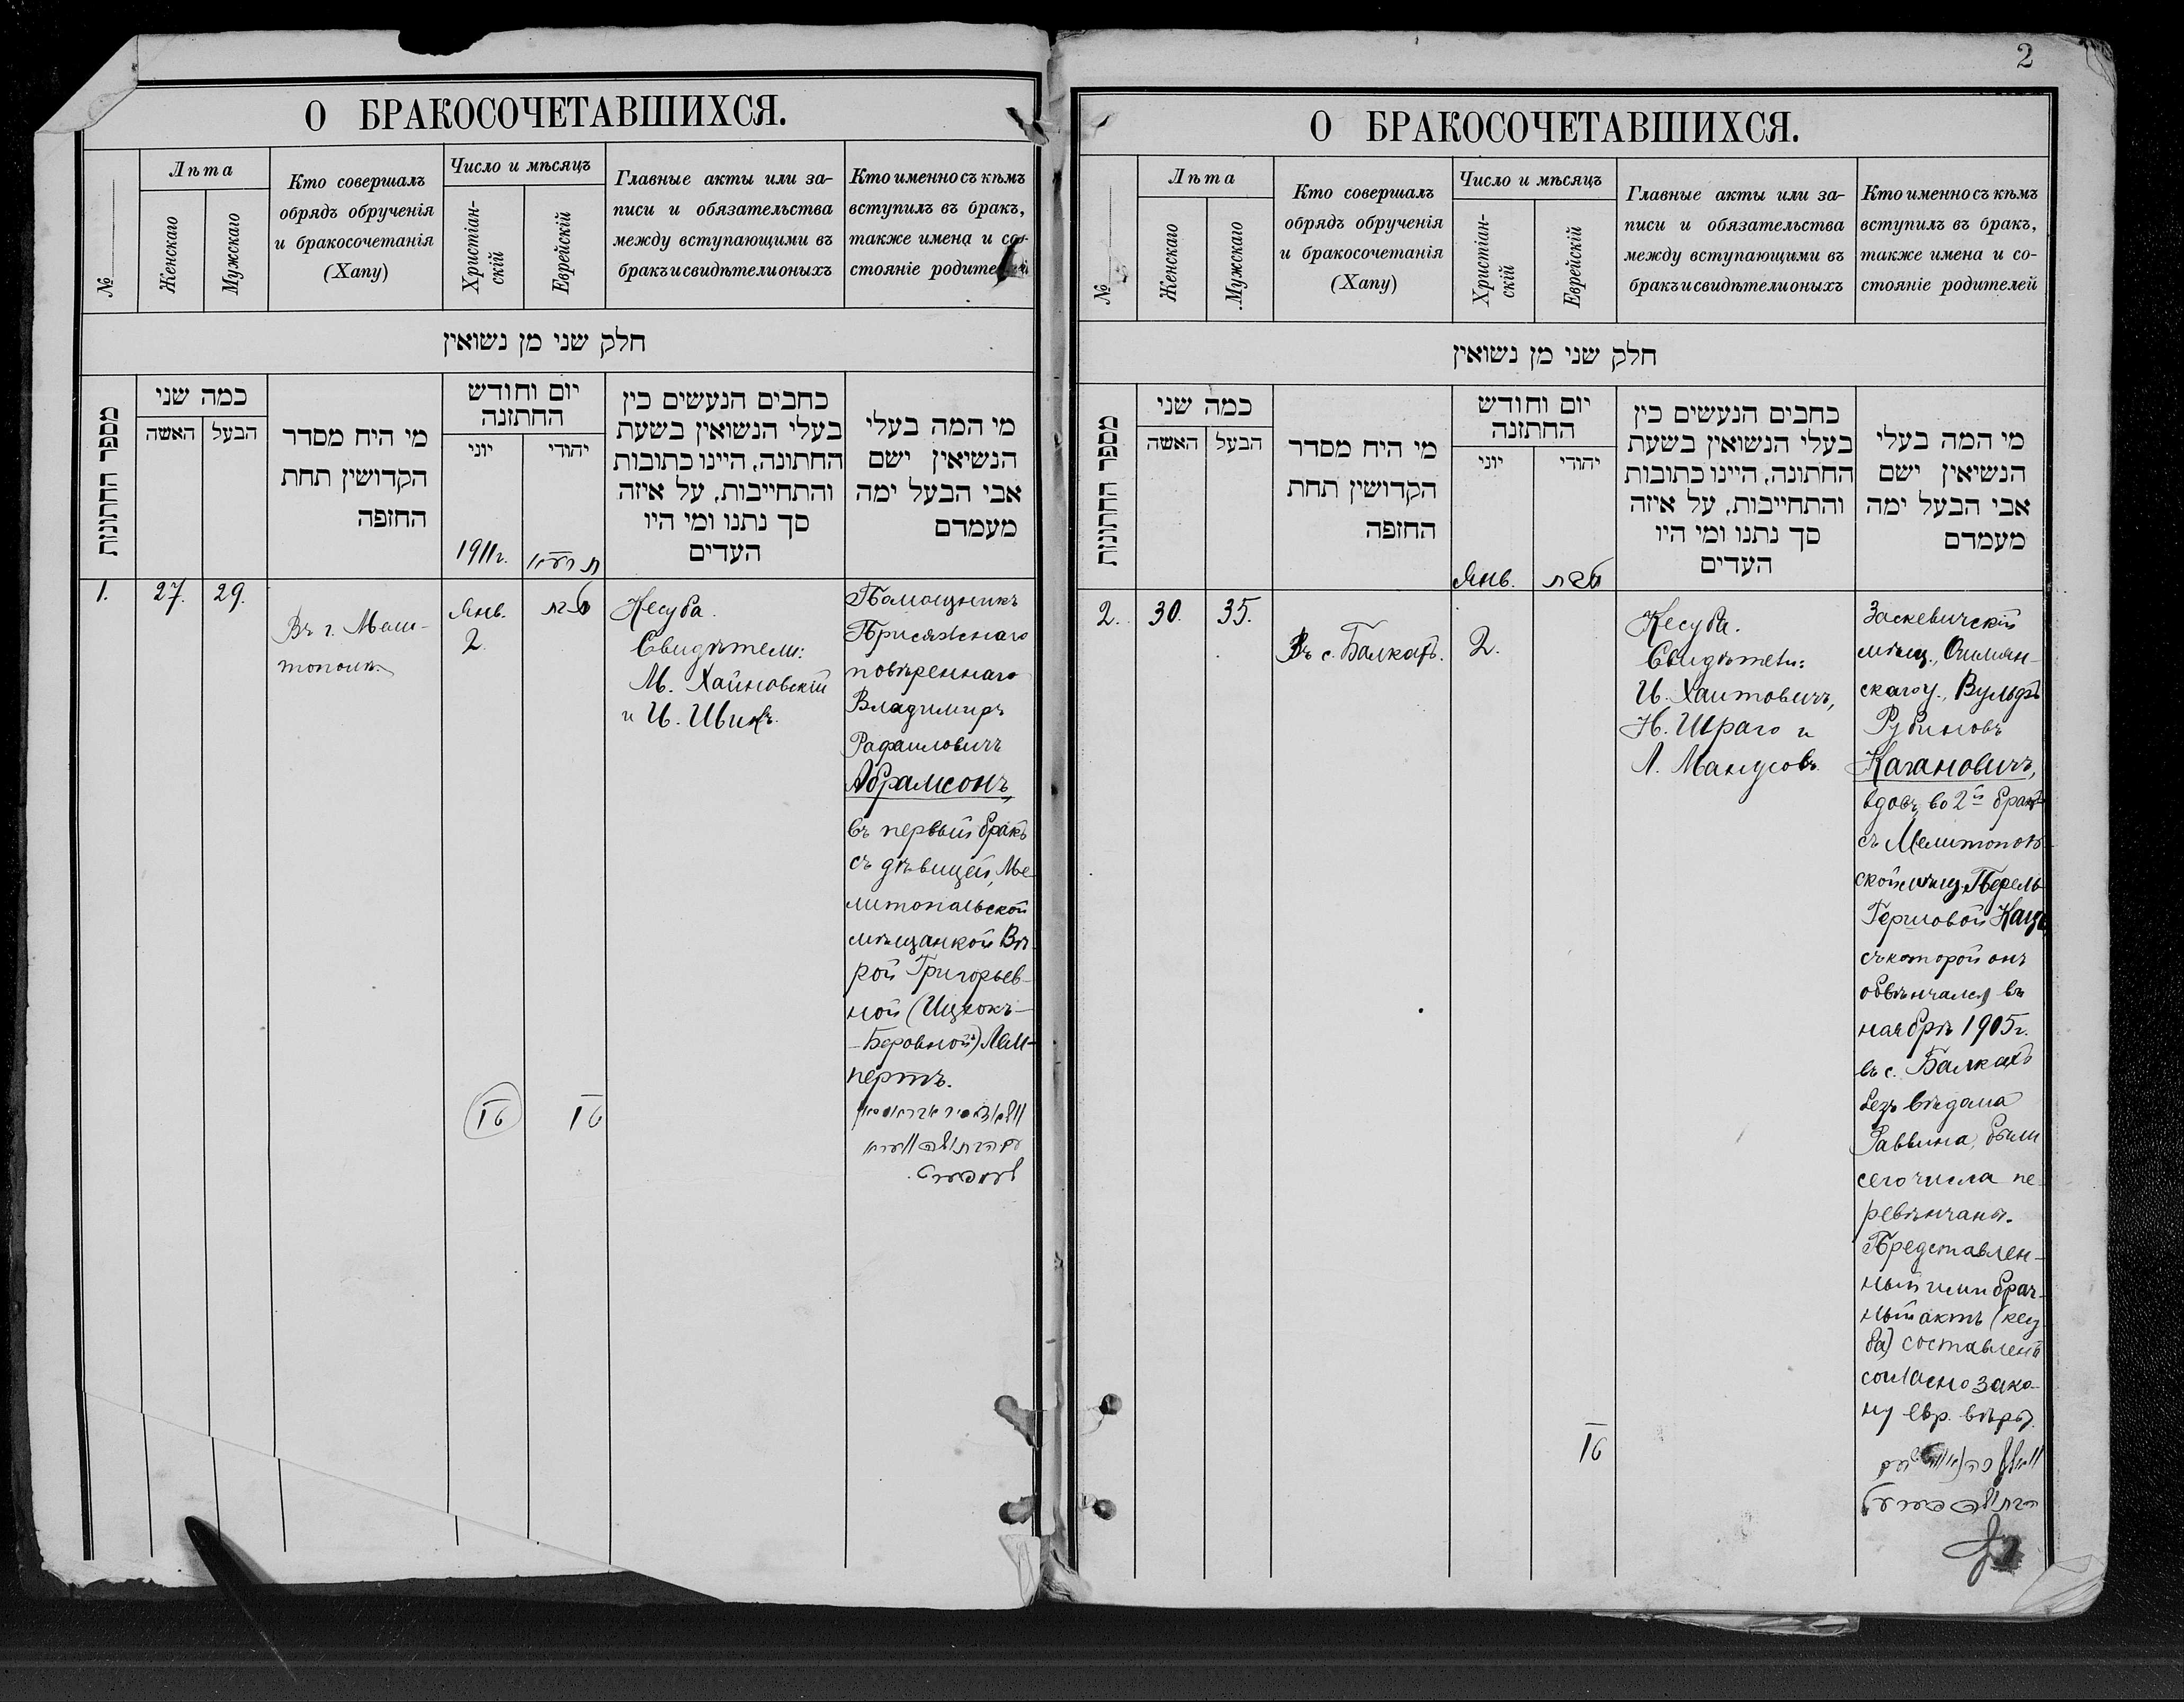 О БРАКОСОЧЕТАВШИХСЯ.
№
Лѣта
Женскаго
Мужскаго
Кто совершалъ
обрядъ обрученія
и бракосочетанія
(Хапу)
Число и мѣсяцъ
Христіан-
скій
Еврейскій
Главные акты или за-
писи и обязательства
между вступающими въ
бракъ и свидѣтели оныхъ
Кто именно съ кѣмъ
вступилъ въ бракъ,
также имена и со-
стояніе родителей
חלק שני מן נשואין
מספר החתונות
כמה שני
האשה
הבעל
מי היח מסדר
הקדושין תחת
החופה
יום וחודש
החתונה
יוני
יהודי
1911г.
כחבים הנעשים כין
בעלי הנשואין בשעת
החתונה, היינו כתובות
והתחייבות, על איזה
סך נתנו ומי היו
העדים
מי המה בעלי
הנשיאין ישם
אבי הבעל ימה
מעמדם
1.
27.
29.
Въ г. Мели-
тополѣ
Янв.
2.
Кесуба.
Свидѣтели:
М. Хайновскій
и И. Шикъ.
Помощникъ
Присяжнаго
повѣреннаго
Владимиръ
Рафаиловичъ
Абрамсонъ,
въ первый бракъ
съ дѣвицей, Ме-
литопольской
мѣщанкой Вѣ-
рой Григорьев-
ной (Ицкокъ-
-Беровной) Лам-
пертъ.
2
О БРАКОСОЧЕТАВШИХСЯ.
№
Лѣта
Женскаго
Мужскаго
Кто совершалъ
обрядъ обрученія
и бракосочетанія
(Хапу)
Число и мѣсяцъ
Христіан-
скій
Еврейскій
Главные акты или за-
писи и обязательства
между вступающими въ
бракъ и свидѣтели оныхъ
Кто именно съ кѣмъ
вступилъ въ бракъ,
также имена и со-
стояніе родителей
חלק שני מן נשואין
מספר החתונות
כמה שני
האשה
הבעל
מי היח מסדר
הקדושין תחת
החופה
יום וחודש
החתונה
יוני
יהודי
Янв.
טבת
כחבים הנעשים כין
בעלי הנשואין בשעת
החתונה, היינו כתובות
והתחייבות, על איזה
סך נתנו ומי היו
העדים
מי המה בעלי
הנשיאין ישם
אבי הבעל ימה
מעמדם
2.
30.
35.
Въ с. Балкахъ.
2.
Кесуба.
Свидѣтели:
И. Хаитовичъ,
Н. Шраго и
Л. Манусовъ.
Заскевичскій
мѣщ., Ошмян-
скаго у., Вульфъ
Рубиновъ
Кагановичъ,
вдовъ, во 2й бракъ
съ Мелитополь-
ской мѣщ. Перель
Гершовой Кацъ,
съ которой онъ
обвѣнчался въ
ноябрѣ 1905г.
въ с. Балкахъ
безъ вѣдома
Раввина, были
сего числа пе-
ревѣнчаны.
Представлен-
ный ими брач-
ный актъ (кесу-
ба) составленъ
согласно зако-
ну евр. вѣры.